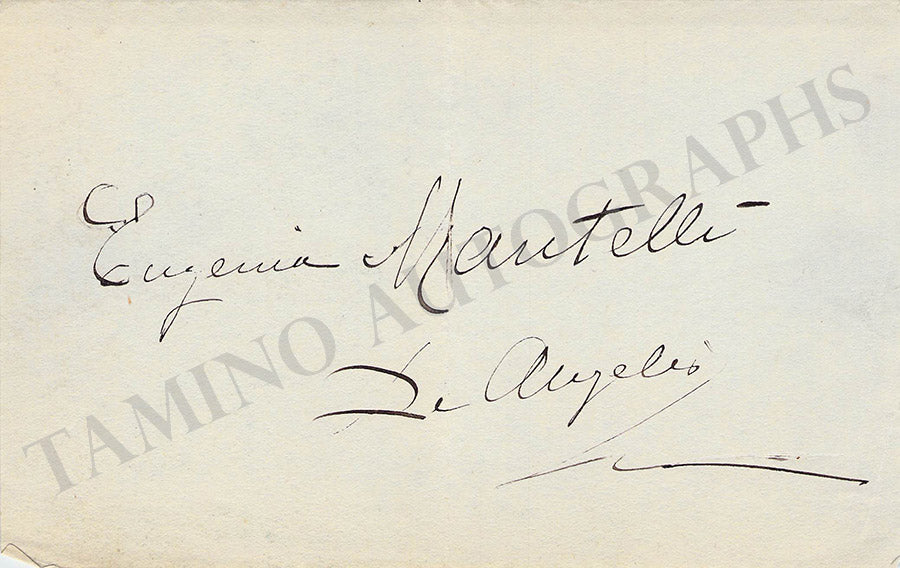 Eugenia Mantelli
De Angelis
TAMINO AUTOGRAPHS